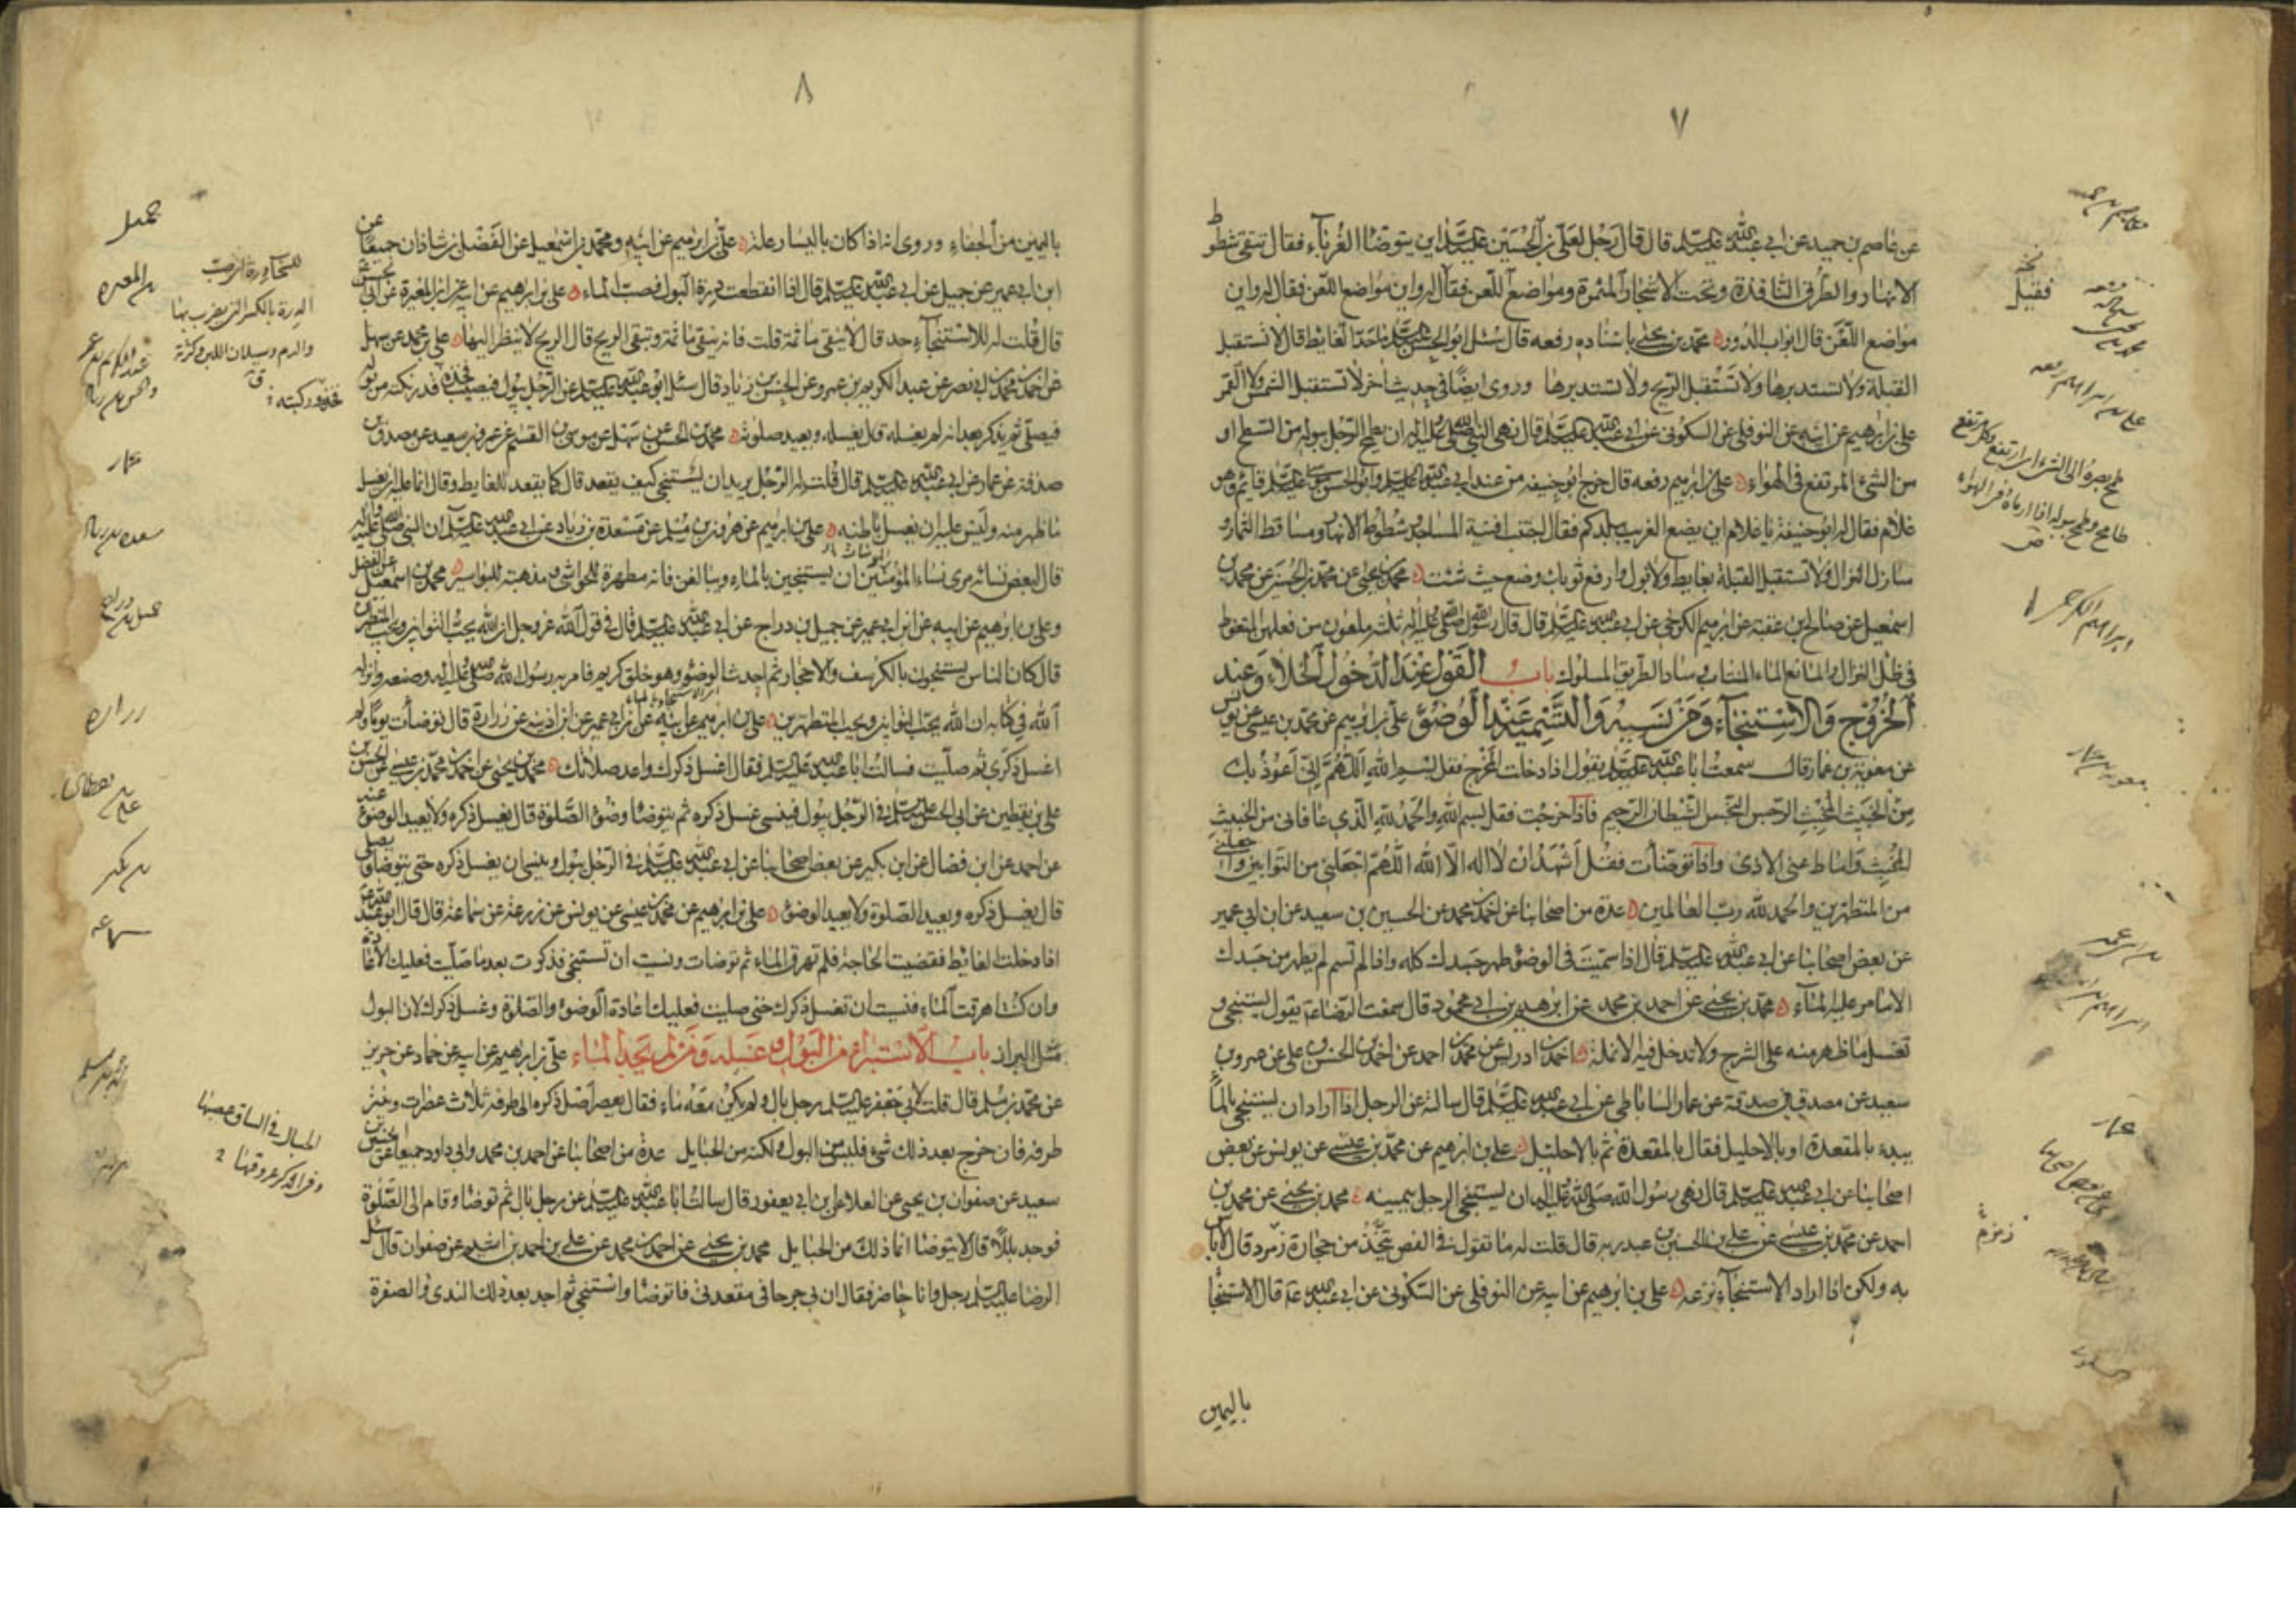 ٧
عن عاصم بن حميد عن ابي عبد الله عليه السلم قال قال رجل لعلي بن الحسين عليه السلم اين يتوضا الغرباء فقال تتقي شطوط
الانهار والطرق النافذة وتحت الاشجار المثمرة ومواضع اللعن فقال له واين مواضع اللعن فقال له واين
مواضع اللعن قال ابواب الدور محمد بن يحيى باسناده رفعه قال سئل ابو الحسن عليه السلم ما حد الغايط قال لا تستقبل
القبلة ولا تستدبرها ولا تستقبل الريح ولا تستدبرها وروى ايضا في حديث اخر لا تستقبل الشمس ولا القمر
علي بن ابرهيم عن ابيه عن النوفلي عن السكوني عن ابي عبد الله عليه السلم قال نهى النبي صلى الله عليه واله ان يطمح الرجل ببوله من السطح او
من الشئ المرتفع في الهواء علي بن ابرهيم رفعه قال خرج ابو حنيفه من عند ابي عبد الله عليه السلم وابو الحسن موسى عليه السلم قائم وهو
غلام فقال له ابو حنيفة يا غلام اين يضع الغريب ببلدكم فقال اجتنب افنية المساجد وشطوط الانهار ومساقط الثمار و
منازل النزال ولا تستقبل القبلة بغايط ولا بول وارفع ثوبك وضع حيث شئت محمد بن يحيى عن محمد بن الحسين عن محمد بن
اسمعيل عن صالح بن عقبة عن ابرهيم الكرخي عن ابي عبد الله عليه السلم قال قال رسول الله صلى الله عليه واله ثلث ملعون من فعلهن المتغوط
في ظل النزال والمانع الماء المنتاب وساد الطريق المسلوك باب القول عند الدخول الخلاء وعند
الخروج والاستنجاء ومن نسيه والتسمية عند الوضوء علي بن ابرهيم عن محمد بن عيسى عن يونس
عن معوية بن عمار قال سمعت ابا عبد الله عليه السلم يقول اذا دخلت المخرج فقل بسم الله اللهم اني اعوذ بك
من الخبيث المخبث الرجس النجس الشيطان الرجيم فاذا خرجت فقل بسم الله والحمد لله الذي عافاني من الخبيث
المخبث واماط عني الاذى واذا توضات فقل اشهد ان لا اله الا الله اللهم اجعلني من التوابين واجعلني
من المتطهرين والحمد لله رب العالمين عدة من اصحابنا عن احمد بن محمد عن الحسين بن سعيد عن ابن ابي عمير
عن بعض اصحابنا عن ابي عبد الله عليه السلم قال اذا سميت في الوضوء طهر جسدك كله واذا لم تسم لم يطهر من جسدك
الا ما مر عليه الماء محمد بن يحيى عن احمد بن محمد عن ابرهيم بن ابي محمود قال سمعت الرضا ع يقول يستنجي و
تغسل ما ظهر منه على الشرج ولا تدخل فيه الانملة احمد بن ادريس عن محمد بن احمد عن احمد بن الحسن بن علي عن عمرو بن
سعيد عن مصدق بن صدقة عن عمار الساباطي عن ابي عبد الله عليه السلم قال سالته عن الرجل اذا اراد ان يستنجي بالماء
يبدء بالمقعدة او بالاحليل فقال بالمقعدة ثم بالاحليل علي بن ابرهيم عن محمد بن عيسى عن يونس عن بعض
اصحابنا عن ابي عبد الله عليه السلم قال نهى رسول الله صلى الله عليه واله ان يستنجي الرجل بيمينه محمد بن يحيى عن محمد بن
احمد عن محمد بن عيسى عن علي بن الحسين بن عبد ربه قال قلت له ما تقول في الفص يتخذ من حجارة زمرد قال لا باس
به ولكن اذا اراد الاستنجاء نزعه علي بن ابرهيم عن ابيه عن النوفلي عن السكوني عن ابي عبد الله ع قال الاستنجا
باليمين
نخه
فقيل
طمح بصره الى الشئ اي ارتفع وكل مرتفع
طامح وطمح ببوله اذا رماه في الهواء
ص
ابراهيم الكرخي
معوية بن عمار
عمار
زمزم
٨
باليمين من الجفاء وروى انه اذا كان باليسار علة علي بن ابرهيم عن ابيه ومحمد بن اسمعيل عن الفضل بن شاذان جميعا عن
ابن ابي عمير عن جميل عن ابي عبد الله عليه السلم قال اذا انقطعت درة البول فصب الماء علي بن ابرهيم عن ابيه عن ابن المغيرة عن ابي الحسن
قال قلت له للاستنجاء حد قال لا ينقي ما ثمة قلت فانه ينقي ما ثمة وتبقى الريح قال الريح لا ينظر اليها علي بن محمد عن سهل
عن احمد بن محمد بن ابي نصر عن عبد الكريم بن عمرو عن الحسن بن زياد قال سئل ابو عبد الله عليه السلم عن الرجل يبول فيصيب فخذه قدر نكته من بوله
فيصلي ثم يذكر بعد انه لم يغسله قال يغسله ويعيد صلوته محمد بن الحسن عن سهل عن موسى بن القسم عن عمرو بن سعيد عن مصدق بن
صدقة عن عمار عن ابي عبد الله عليه السلم قال قلت له الرجل يريد ان يستنجي كيف يقعد قال كما يقعد للغايط وقال انما عليه ان يغسل
ما ظهر منه وليس عليه ان يغسل باطنه علي بن ابرهيم عن هرون بن مسلم عن مسعدة بن زياد عن ابي عبد الله عليه السلم ان النبي صلى الله عليه واله
قال لبعض نسائه مري نساء المؤمنين ان يستنجين بالماء ويبالغن فانه مطهرة للحواشي ومذهبة للبواسير محمد بن اسمعيل عن الفضل
وعلي بن ابرهيم عن ابيه عن ابن ابي عمير عن جميل بن دراج عن ابي عبد الله عليه السلم قال في قول الله عز وجل ان الله يحب التوابين ويحب المتطهرين
قال كان الناس يستنجون بالكرسف والاحجار ثم احدث الوضوء وهو خلق كريم فامر به رسول الله صلى الله عليه واله وصنعه وانزله
الله في كتابه ان الله يحب التوابين ويحب المتطهرين علي بن ابرهيم عن ابيه عن ابن ابي عمير عن ابن اذينه عن زرارة قال توضأت يوما ولم
اغسل ذكري ثم صليت فسالت ابا عبد الله عليه السلم فقال اغسل ذكرك واعد صلاتك محمد بن يحيى عن احمد بن محمد بن عيسى عن الحسن بن
علي بن يقطين عن ابي الحسن عليه السلم في الرجل يبول فينسى غسل ذكره ثم يتوضا وضوء الصلوة قال يغسل ذكره ولا يعيد الوضوء عنه
عن احمد عن ابن فضال عن ابن بكير عن بعض اصحابنا عن ابي عبد الله عليه السلم في الرجل يبول وينسى ان يغسل ذكره حتى يتوضا ويصلي
قال يغسل ذكره ويعيد الصلوة ولا يعيد الوضوء علي بن ابرهيم عن محمد بن عيسى عن يونس عن زرعة عن سماعة قال قال ابو عبد الله ع
اذا دخلت الغائط فقضيت الحاجة فلم تهرق الماء ثم توضات ونسيت ان تستنجي فذكرت بعد ما صليت فعليك الاعادة
وان كنت اهرقت الماء فنسيت ان تغسل ذكرك حتى صليت فعليك اعادة الوضوء والصلوة وغسل ذكرك لان البول
مثل البراز باب الاستبراء من البول وغسله ومن لم يجد الماء علي بن ابرهيم عن ابيه عن حماد عن حريز
عن محمد بن مسلم قال قلت لابي جعفر عليه السلم رجل بال ولم يكن معه ماء فقال يعصر اصل ذكره الى طرفه ثلاث عصرات وينتر
طرفه فان خرج بعد ذلك شئ فليس من البول ولكنه من الحبايل عدة من اصحابنا عن احمد بن محمد وابي داود جميعا عن الحسين بن
سعيد عن صفوان بن يحيى عن العلا عن ابن ابي يعفور قال سالت ابا عبد الله عليه السلم عن رجل بال ثم توضا وقام الى الصلوة
فوجد بللا قال لا يتوضا انما ذلك من الحبايل محمد بن يحيى عن احمد بن محمد عن علي بن احمد بن اشيم عن صفوان قال سئل
الرضا عليه السلم رجل وانا حاضر فقال ان بي جرحا في مقعدتي فاتوضا واستنجي ثم اجد بعد ذلك الندى والصفرة
جميل
بن المغيره
الدرة بالكسر التي يضرب بها
والدم وسيلان اللبن وكثرته
ق
عمار
مسعده بن زياد
جميل بن دراج
زراره
علي بن يقطين
بن بكير
سماعه
الحبال في الساق عصبها
وفي الذكر عروقها